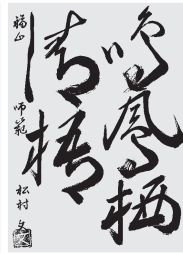 鳴鳳栖
青梧
福山 師範 松村 文